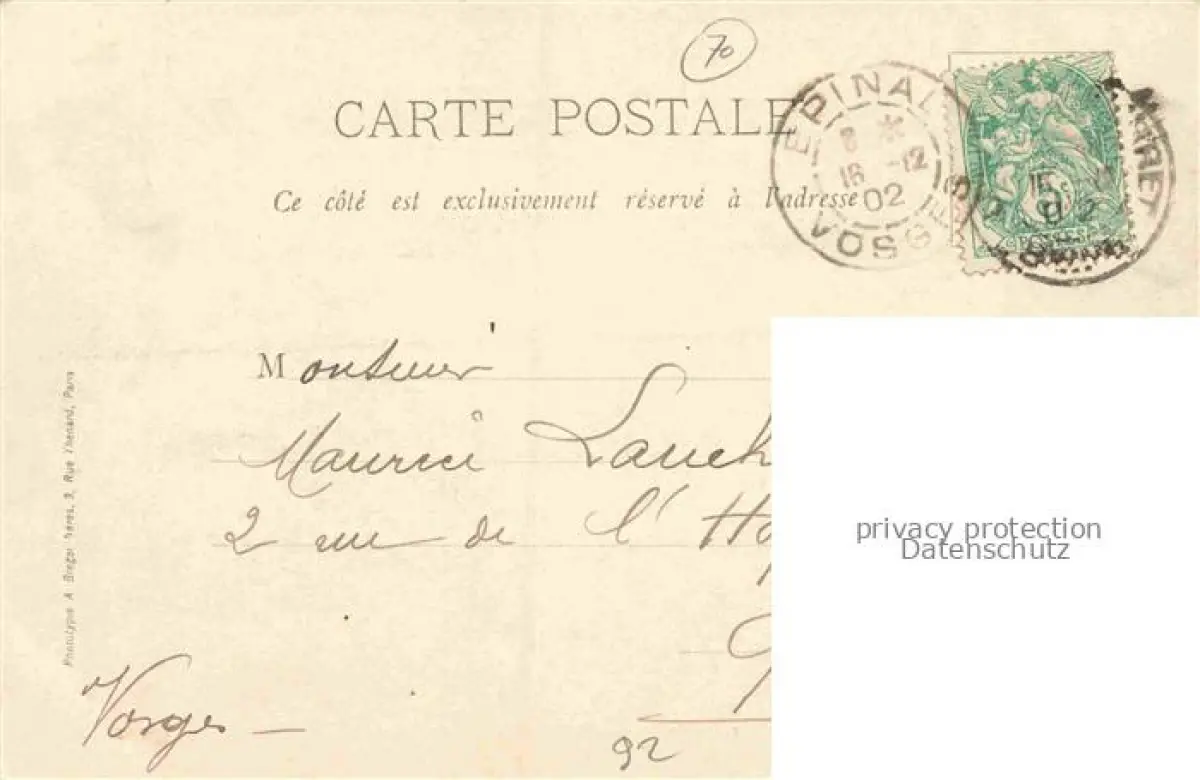 70
CARTE POSTALE
Ce côté est exclusivement réservé à l'adresse
EPINAL
8 *
16 -12
02
VOSGES
15
02
Monsieur
Maurice Lauch
2 rue de l'Ho
Vosges –
92
Phototypie A. Breger frères, 9, Rue Thénard, Paris
privacy protection
Datenschutz